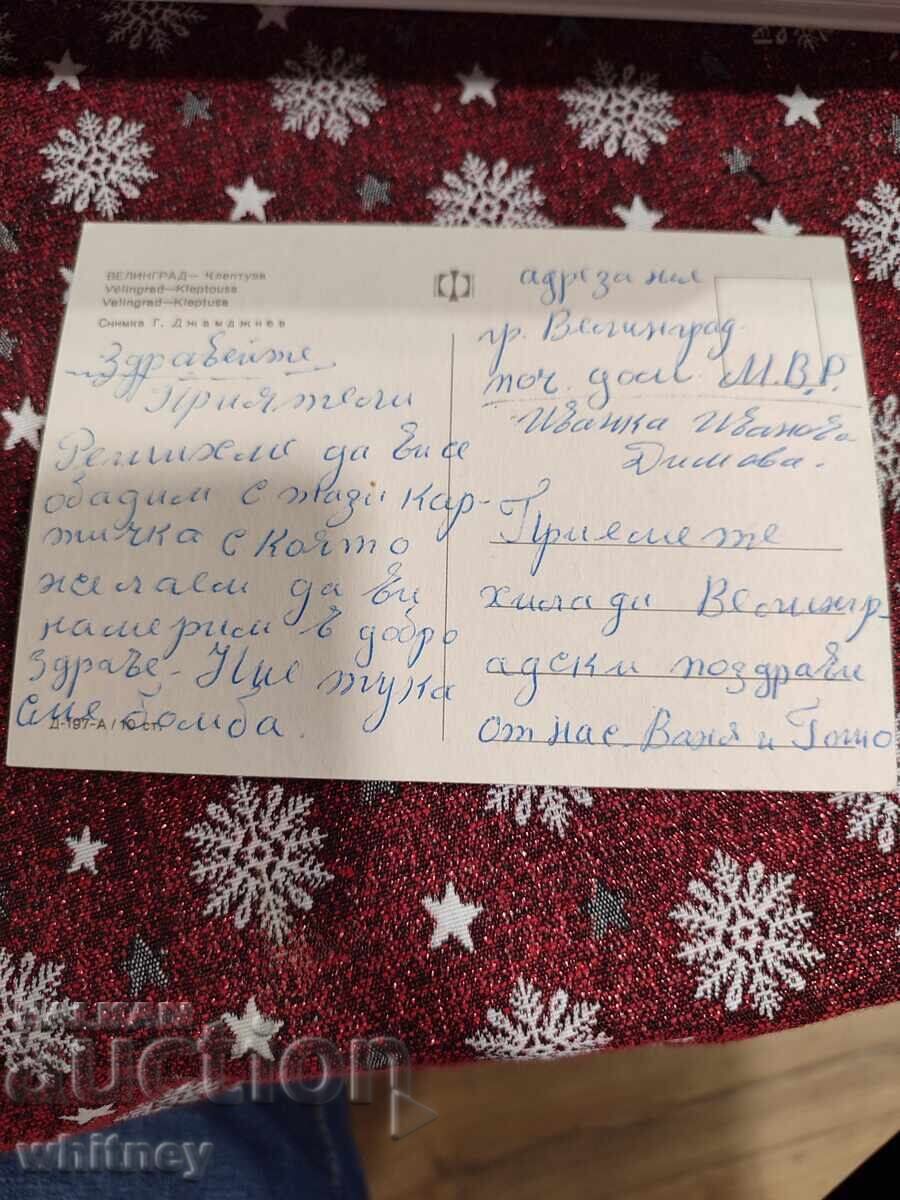 ВЕЛИНГРАД— Клептуза
Velingrad—Kleptouse
Velingrad—Kleptuse
Снимка Г. Джамджиев
Здравейте
Приятели
Решихме да ви се
обадим с тази кар-
тичка с която
желаем да ви
намерим в добро
Здраве - Ние тука
сме бомба.
Д-197-А / 10 ст.
адрес за нея
гр. Велинград.
поч. дом М.В.Р.
Иванка Иванова
Димова.
Приемете
хиляди Велингр-
адски поздрави
от нас Ваня и Гошо
BALKAN
auction
whitney